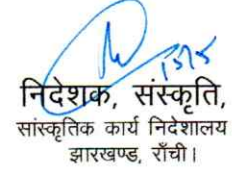 निदेशक, संस्कृति,
सांस्कृतिक कार्य निदेशालय
झारखण्ड, राँची।